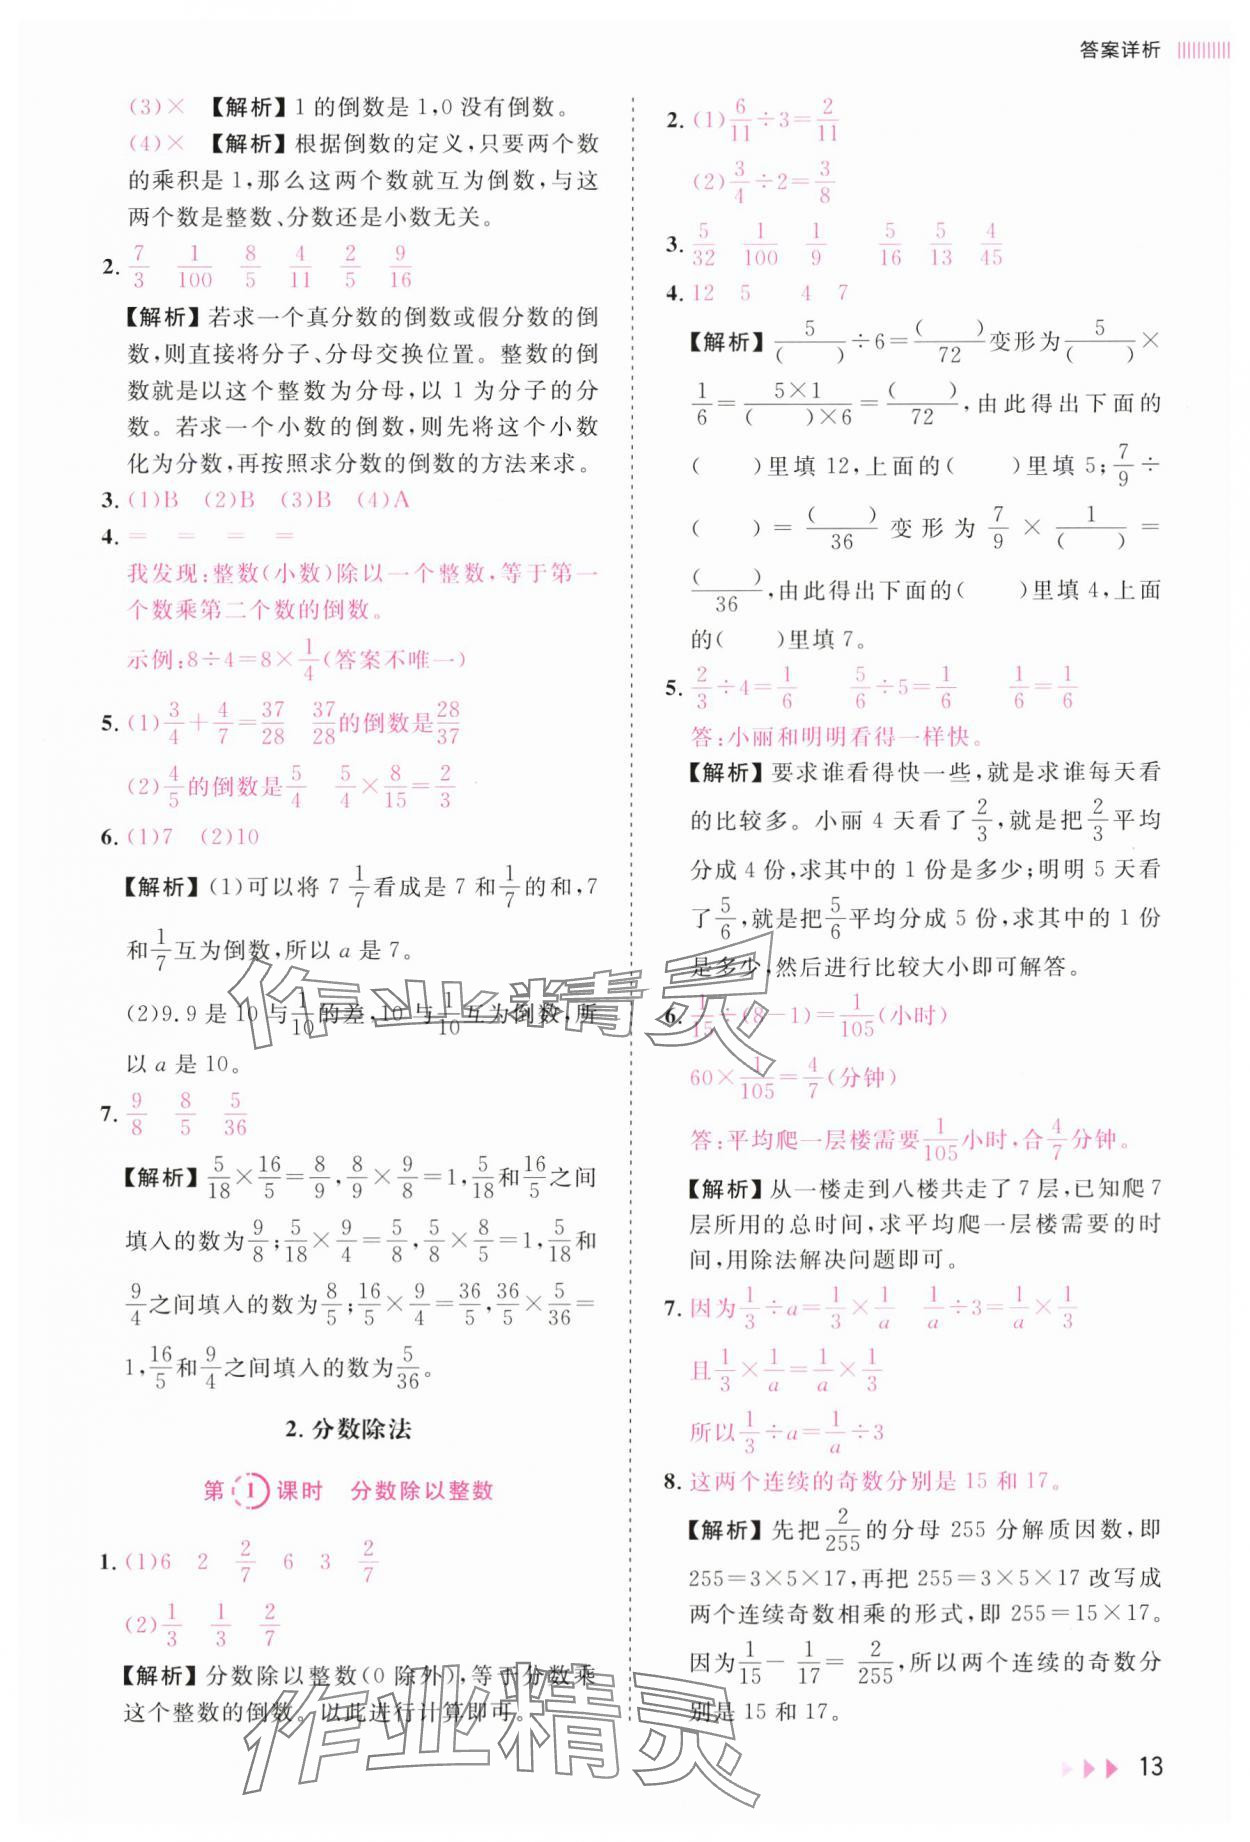 答案详析
(3)× 【解析】1 的倒数是 1,0 没有倒数。
(4)× 【解析】根据倒数的定义,只要两个数
的乘积是 1,那么这两个数就互为倒数,与这
两个数是整数、分数还是小数无关。
2. 7/3 1/100 8/5 4/11 2/5 9/16
【解析】若求一个真分数的倒数或假分数的倒
数,则直接将分子、分母交换位置。整数的倒
数就是以这个整数为分母,以 1 为分子的分
数。若求一个小数的倒数,则先将这个小数
化为分数,再按照求分数的倒数的方法来求。
3. (1)B (2)B (3)B (4)A
4. = = = =
我发现:整数(小数)除以一个整数,等于第一
个数乘第二个数的倒数。
示例:8÷4=8×1/4(答案不唯一)
5. (1)3/4+4/7=37/28 37/28的倒数是28/37
(2)4/5的倒数是5/4 5/4×8/15=2/3
6. (1)7 (2)10
【解析】(1)可以将 7 1/7看成是 7 和1/7的和,7
和1/7互为倒数,所以 a 是 7。
(2)9.9 是 10 与1/10的差,10 与1/10互为倒数,所
以 a 是 10。
7. 9/8 8/5 5/36
【解析】5/18×16/5=8/9,8/9×9/8=1,5/18和16/5之间
填入的数为9/8;5/18×9/4=5/8,5/8×8/5=1,5/18和
9/4之间填入的数为8/5;16/5×9/4=36/5,36/5×5/36=
1,16/5和9/4之间填入的数为5/36。
2. 分数除法
第 1 课时 分数除以整数
1. (1)6 2 2/7 6 3 2/7
(2)1/3 1/3 2/7
【解析】分数除以整数(0 除外),等于分数乘
这个整数的倒数。以此进行计算即可。
2. (1)6/11÷3=2/11
(2)3/4÷2=3/8
3. 5/32 1/100 1/9 5/16 5/13 4/45
4. 12 5 4 7
【解析】5/( )÷6=( )/72变形为5/( )×
1/6=5×1/( )×6=( )/72,由此得出下面的
( )里填 12,上面的( )里填 5;7/9÷
( )=( )/36变形为7/9×1/( )=
( )/36,由此得出下面的( )里填 4,上面
的( )里填 7。
5. 2/3÷4=1/6 5/6÷5=1/6 1/6=1/6
答:小丽和明明看得一样快。
【解析】要求谁看得快一些,就是求谁每天看
的比较多。小丽 4 天看了2/3,就是把2/3平均
分成 4 份,求其中的 1 份是多少;明明 5 天看
了5/6,就是把5/6平均分成 5 份,求其中的 1 份
是多少,然后进行比较大小即可解答。
6. 1/15÷(8-1)=1/105(小时)
60×1/105=4/7(分钟)
答:平均爬一层楼需要1/105小时,合4/7分钟。
【解析】从一楼走到八楼共走了 7 层,已知爬 7
层所用的总时间,求平均爬一层楼需要的时
间,用除法解决问题即可。
7. 因为1/3÷a=1/3×1/a 1/a÷3=1/a×1/3
且1/3×1/a=1/a×1/3
所以1/3÷a=1/a÷3
8. 这两个连续的奇数分别是 15 和 17。
【解析】先把2/255的分母 255 分解质因数,即
255=3×5×17,再把 255=3×5×17 改写成
两个连续奇数相乘的形式,即 255=15×17。
因为1/15-1/17=2/255,所以两个连续的奇数分
别是 15 和 17。
作业精灵
作业精灵
13